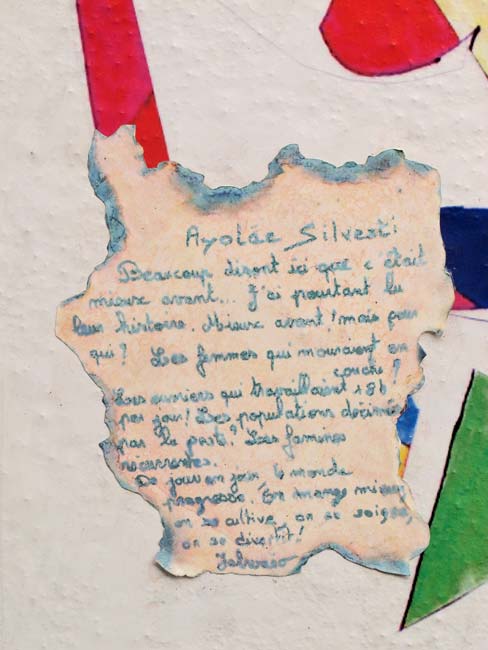 Ayolée Silvesti
Beaucoup diront ici que c'était
mieux avant... J'ai pourtant lu
leur histoire. Mieux avant! mais pour
qui? Les femmes qui mouraient en
couche?
Les ouvriers qui travaillaient 18h
par jour! Les populations décimées
par la peste? Les famines
récurrentes.
De jour en jour, le monde
progresse. On mange mieux,
on se cultive, on se soigne,
on se divertit!